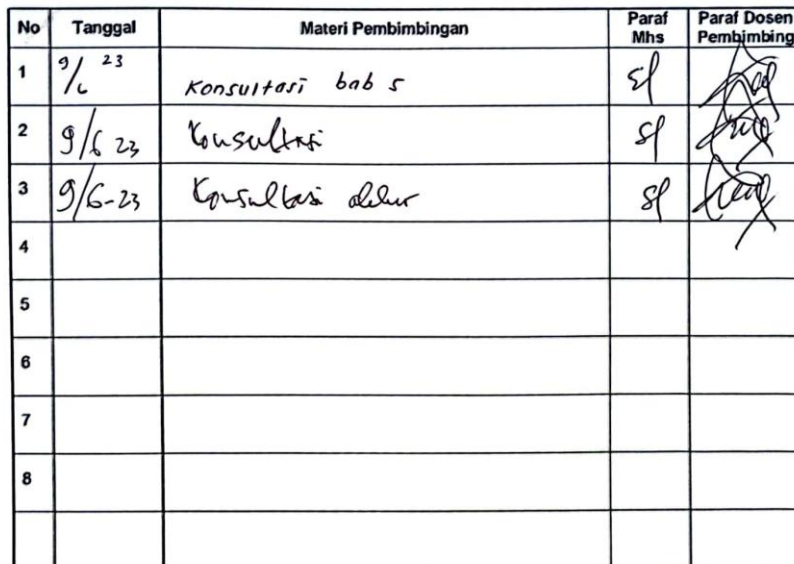 No Tanggal Materi Pembimbingan Paraf Mhs Paraf Dosen Pembimbing
1 9/6 23 Konsultasi bab 5
2 9/6 23 Konsultasi
3 9/6-23 Konsultasi
4
5
6
7
8